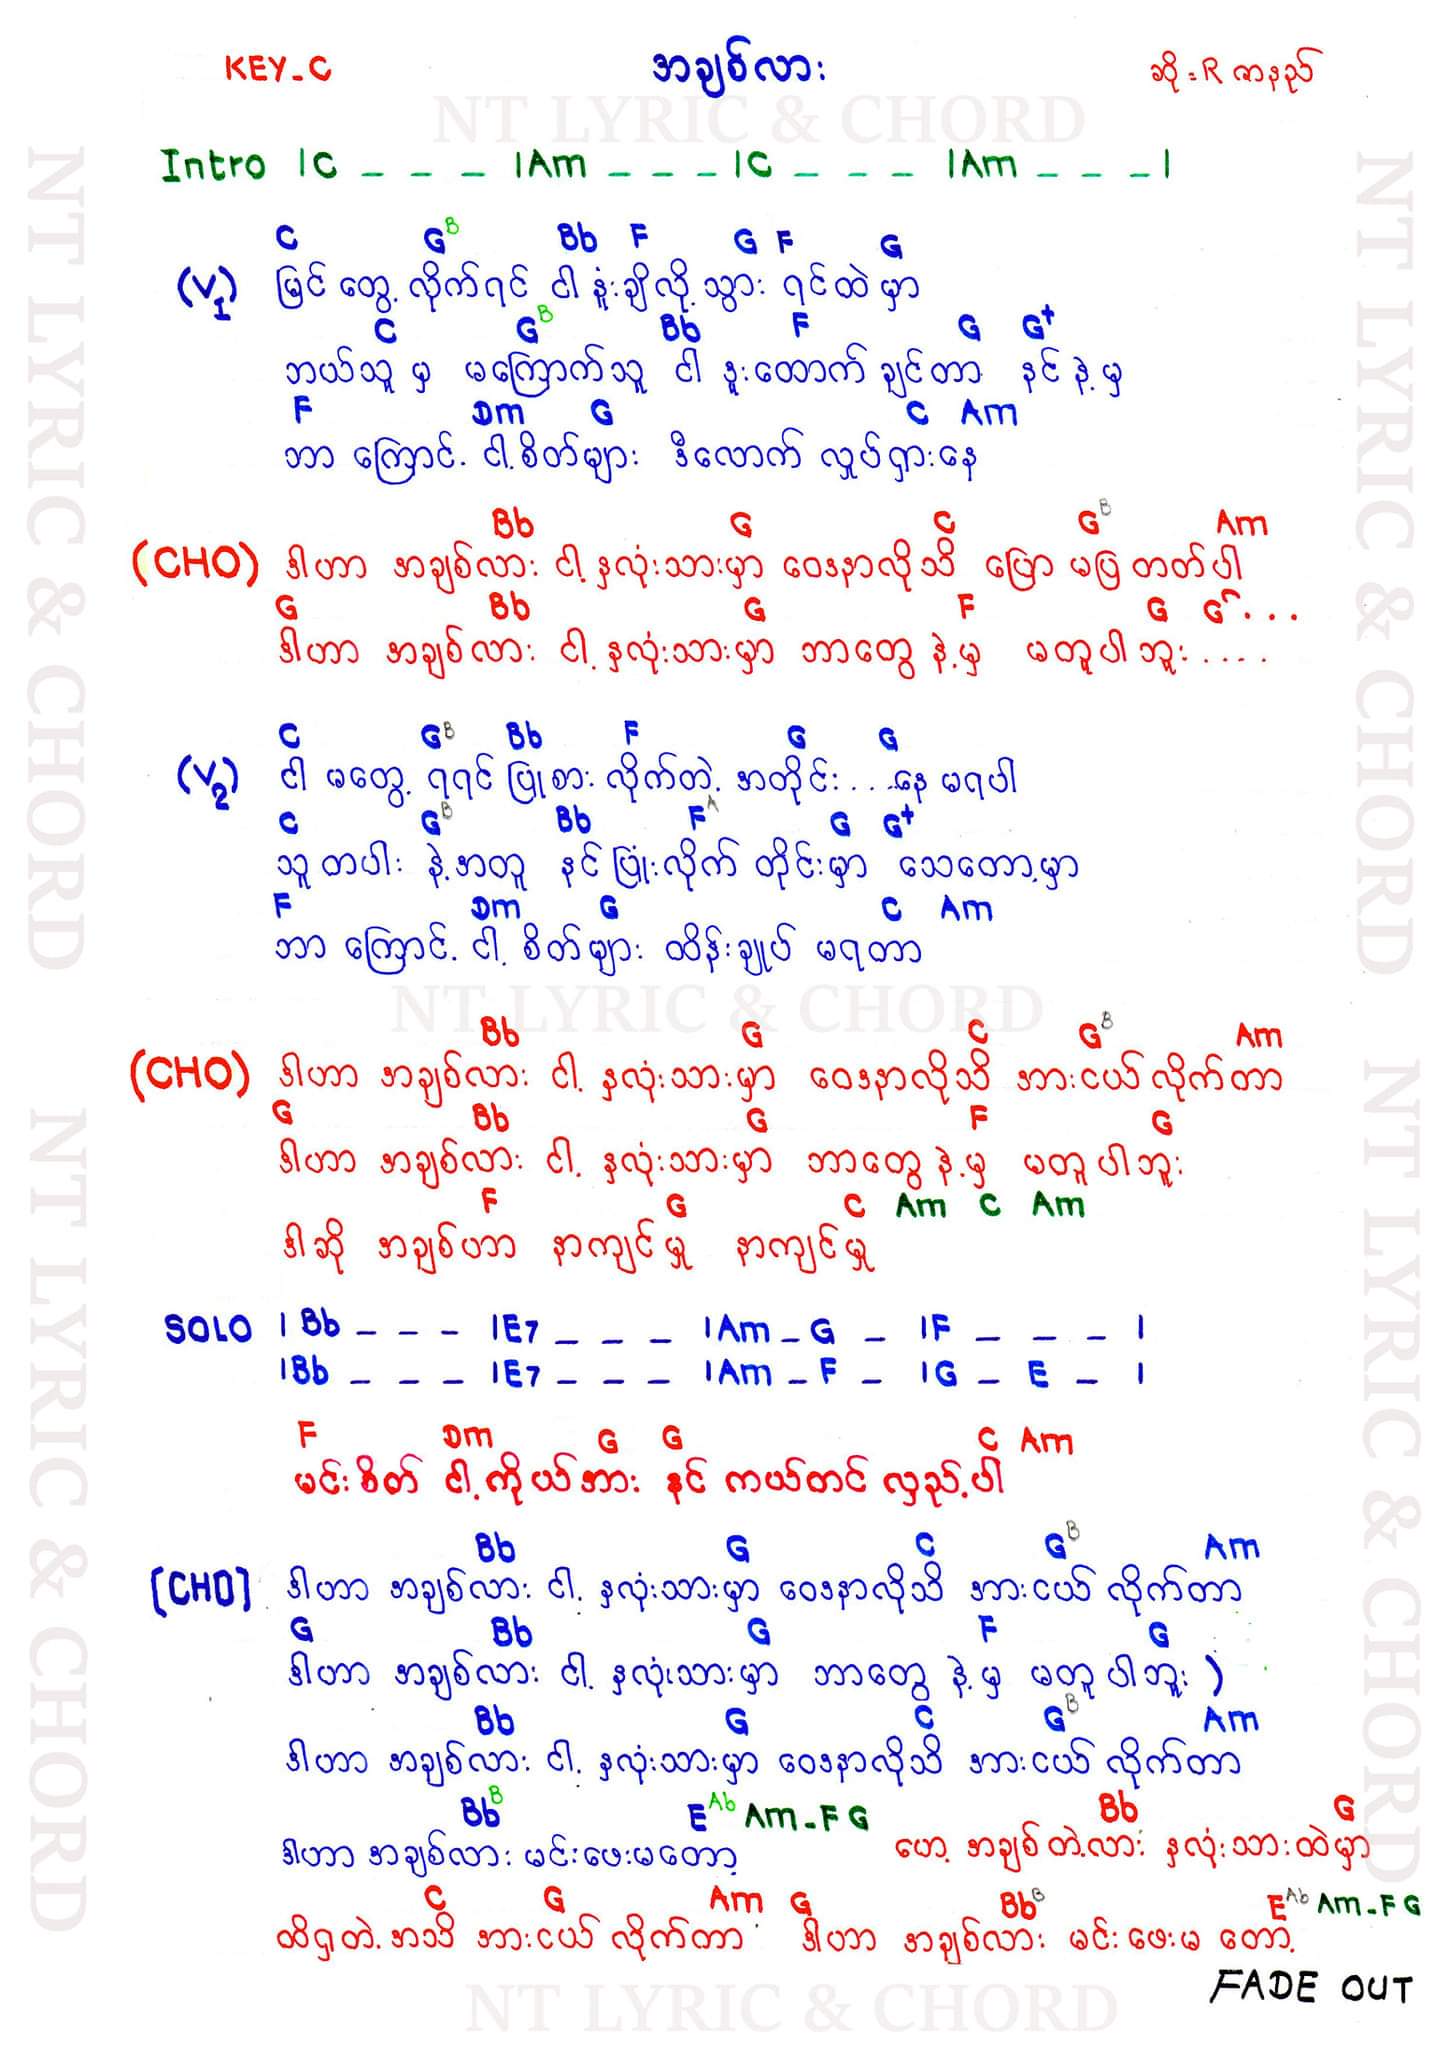 KEY_C အချစ်လား ဆို = R ဇာနည်
NT LYRIC & CHORD
Intro |C _ _ _ |Am _ _ _ |C _ _ _ |Am _ _ _ |
C G B Bb F G F G
(V1) မြင်တွေ့လိုက်ရင် ငါ နူးချိလို့သွား ရင်ထဲမှာ
C G B Bb F G G+
ဘယ်သူမှ မကြောက်သူ ငါ နူးထောက်ချင်တာ နင်နဲ့မှ
F Dm G C Am
ဘာကြောင့် ငါ့စိတ်များ ဒီလောက် လှုပ်ရှားနေ
Bb G C G B Am
(CHO) ဒါဟာ အချစ်လား ငါ့နှလုံးသားမှာ ဝေဒနာလိုသိ ပြောမပြတတ်ပါ
G Bb G F G G ...
ဒါဟာ အချစ်လား ငါ့နှလုံးသားမှာ ဘာတွေနဲ့မှ မတူပါဘူး ....
C G B Bb F G G
(V2) ငါ မတွေ့ရရင် ပြုစားလိုက်တဲ့ အတိုင်း...နေမရပါ
C G B Bb F A G G+
သူတပါးနဲ့အတူ နင်ပြုံးလိုက်တိုင်းမှာ သေတော့မှာ
F Dm G C Am
ဘာကြောင့် ငါ့ စိတ်များ ထိန်းချုပ် မရတာ
NT LYRIC & CHORD
Bb G C G B Am
(CHO) ဒါဟာ အချစ်လား ငါ့ နှလုံးသားမှာ ဝေဒနာလိုသိ အားငယ်လိုက်တာ
G Bb G F G
ဒါဟာ အချစ်လား ငါ့ နှလုံးသားမှာ ဘာတွေနဲ့မှ မတူပါဘူး
F G C Am C Am
ဒါဆို အချစ်ဟာ နာကျင်မှု နာကျင်မှု
SOLO | Bb _ _ _ |E7 _ _ _ |Am _ G _ |F _ _ _ |
|Bb _ _ _ |E7 _ _ _ |Am _ F _ |G _ E _ |
F Dm G G C Am
မင်းစိတ် ငါ့ကိုယ်အား နင် ကယ်တင်လှည့်ပါ
Bb G C G B Am
[CHO] ဒါဟာ အချစ်လား ငါ့ နှလုံးသားမှာ ဝေဒနာလိုသိ အားငယ်လိုက်တာ
G Bb G F G
ဒါဟာ အချစ်လား ငါ့ နှလုံးသားမှာ ဘာတွေနဲ့မှ မတူပါဘူး )
Bb G C G B Am
ဒါဟာ အချစ်လား ငါ့ နှလုံးသားမှာ ဝေဒနာလိုသိ အားငယ်လိုက်တာ
Bb B E Ab Am-F G Bb G
ဒါဟာ အချစ်လား မင်းဖေးမတော့ ဟေ့ အချစ်တဲ့လား နှလုံးသားထဲမှာ
C G Am G Bb B E Ab Am-F G
ထိရှတဲ့အသိ အားငယ်လိုက်တာ ဒါဟာ အချစ်လား မင်းဖေးမတော့
FADE OUT
NT LYRIC & CHORD
NT LYRIC & CHORD
NT LYRIC & CHORD
NT LYRIC & CHORD
NT LYRIC & CHORD